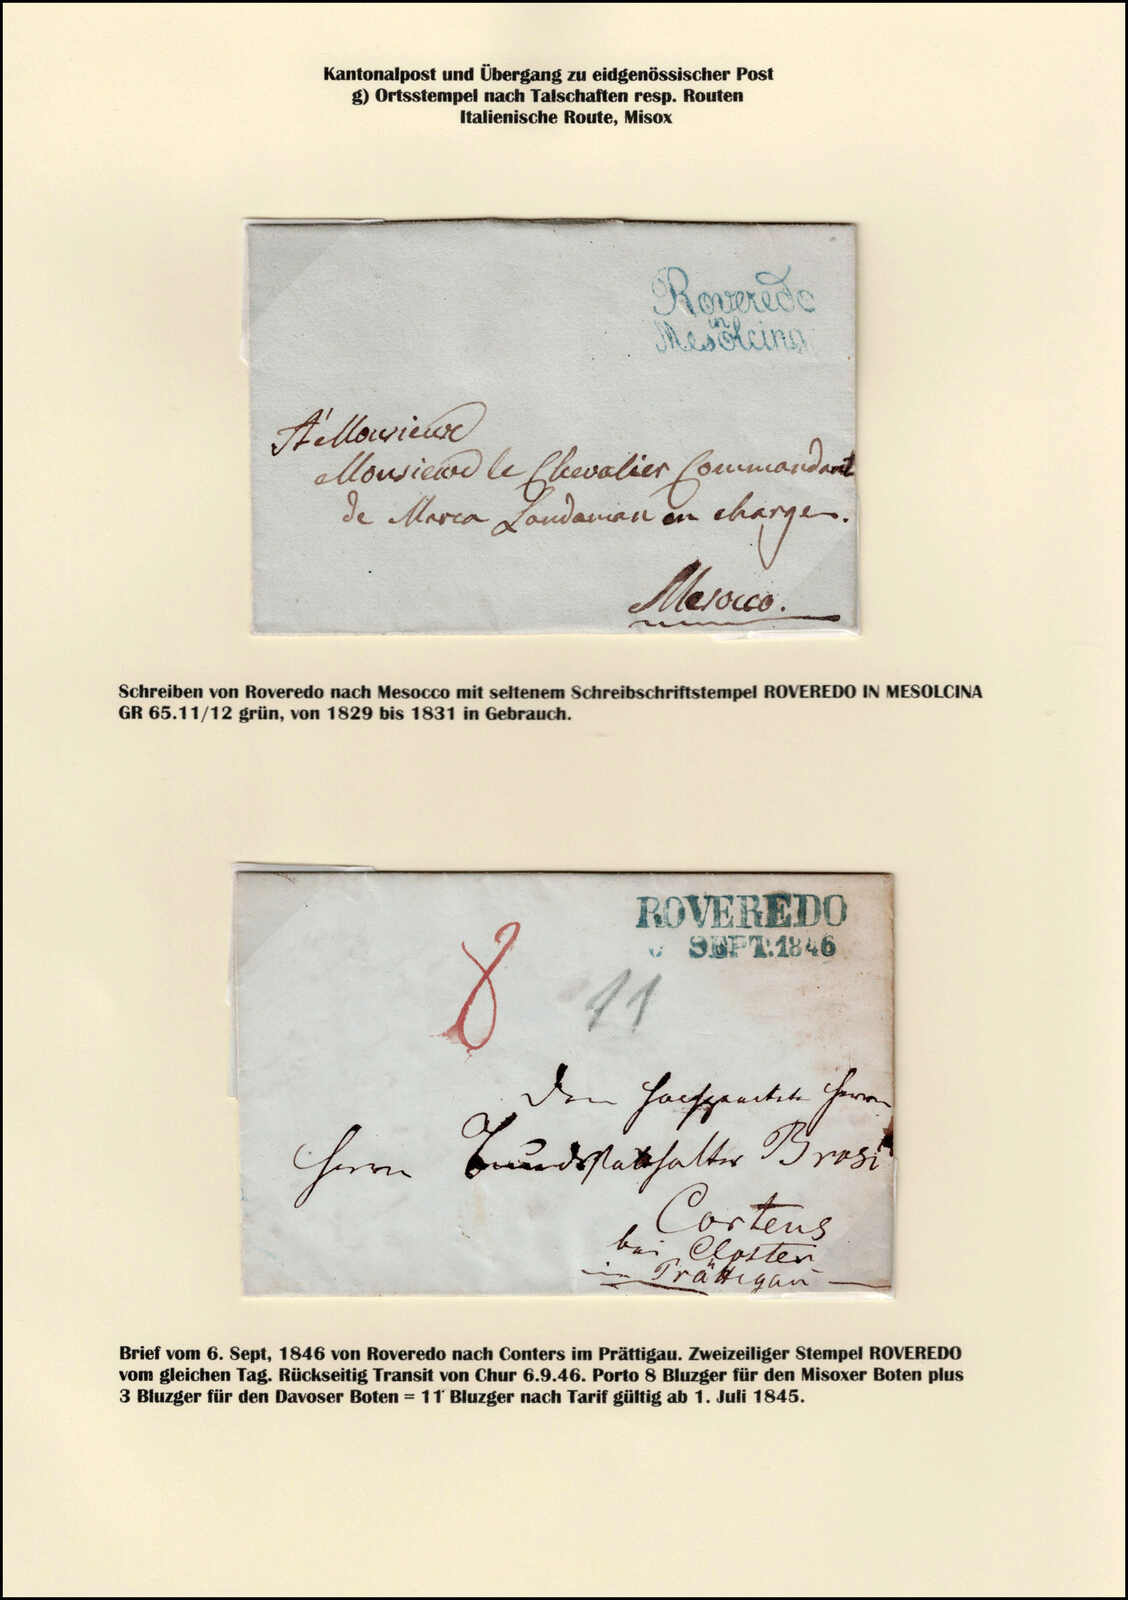 Kantonalpost und Übergang zu eidgenössischer Post
g) Ortsstempel nach Talschaften resp. Routen
Italienische Route, Misox
Roveredo
in
Mesolcina
A' Monsieur
Monsieur le Chevalier Commandant
de Marca Landaman en charge.
Mesocco.
Schreiben von Roveredo nach Mesocco mit seltenem Schreibschriftstempel ROVEREDO IN MESOLCINA
GR 65.11/12 grün, von 1829 bis 1831 in Gebrauch.
ROVEREDO
SEPT. 1846
8
11
Dem Herrn
Herrn Bundsstatthalter Brosi
Contens
bei Closter
im Prättigau
Brief vom 6. Sept, 1846 von Roveredo nach Conters im Prättigau. Zweizeiliger Stempel ROVEREDO
vom gleichen Tag. Rückseitig Transit von Chur 6.9.46. Porto 8 Bluzger für den Misoxer Boten plus
3 Bluzger für den Davoser Boten = 11 Bluzger nach Tarif gültig ab 1. Juli 1845.